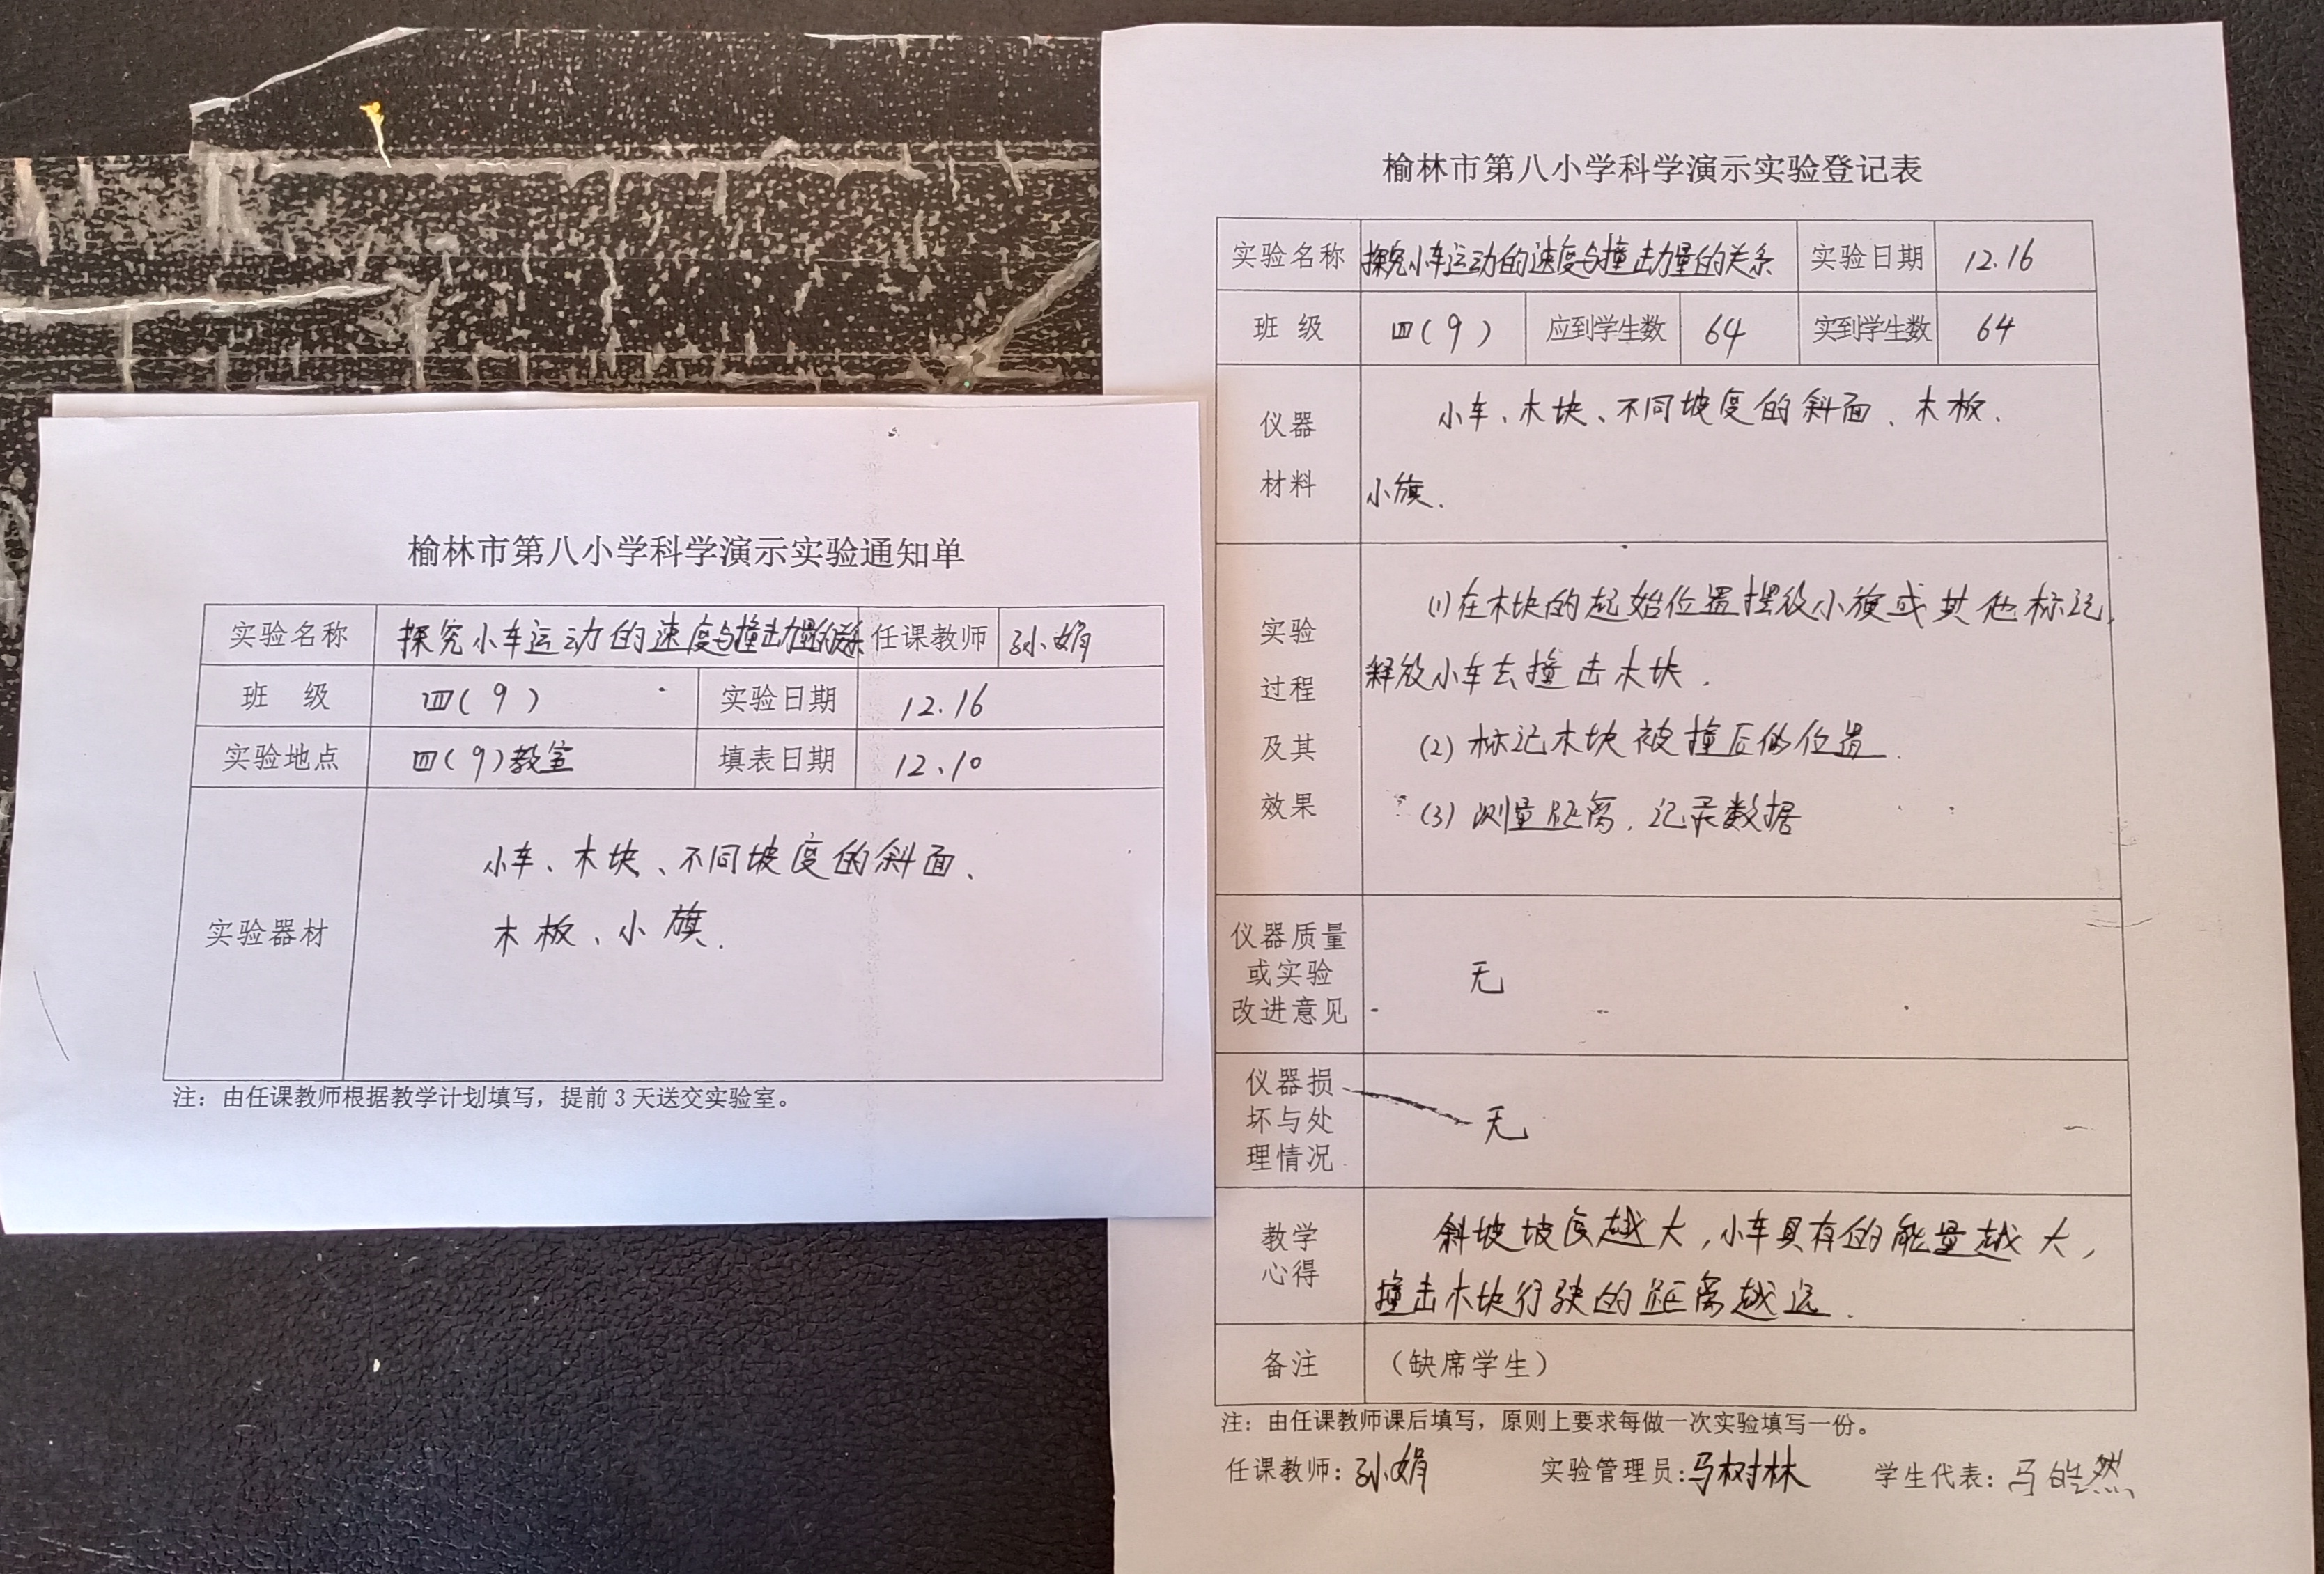 榆林市第八小学科学演示实验通知单
实验名称 探究小车运动的速度与撞击力量的关系 任课教师 孙娟
班 级 四(9) 实验日期 12.16
实验地点 四(9)教室 填表日期 12.10
实验器材
小车、木块、不同坡度的斜面、
木板、小旗.
注：由任课教师根据教学计划填写，提前3天送交实验室。
榆林市第八小学科学演示实验登记表
实验名称 探究小车运动的速度与撞击力量的关系 实验日期 12.16
班 级 四(9) 应到学生数 64 实到学生数 64
仪器
材料
小车、木块、不同坡度的斜面、木板、
小旗.
实验
过程
及其
效果
(1)在木块的起始位置摆放小旗或其他标记,
释放小车去撞击木块.
(2)标记木块被撞后的位置.
(3)测量距离,记录数据
仪器质量
或实验
改进意见
无
仪器损
坏与处
理情况
无
教学
心得
斜坡坡度越大,小车具有的能量越大,
撞击木块行驶的距离越远.
备注 （缺席学生）
注：由任课教师课后填写，原则上要求每做一次实验填写一份。
任课教师：孙娟 实验管理员：马树林 学生代表：马皓然